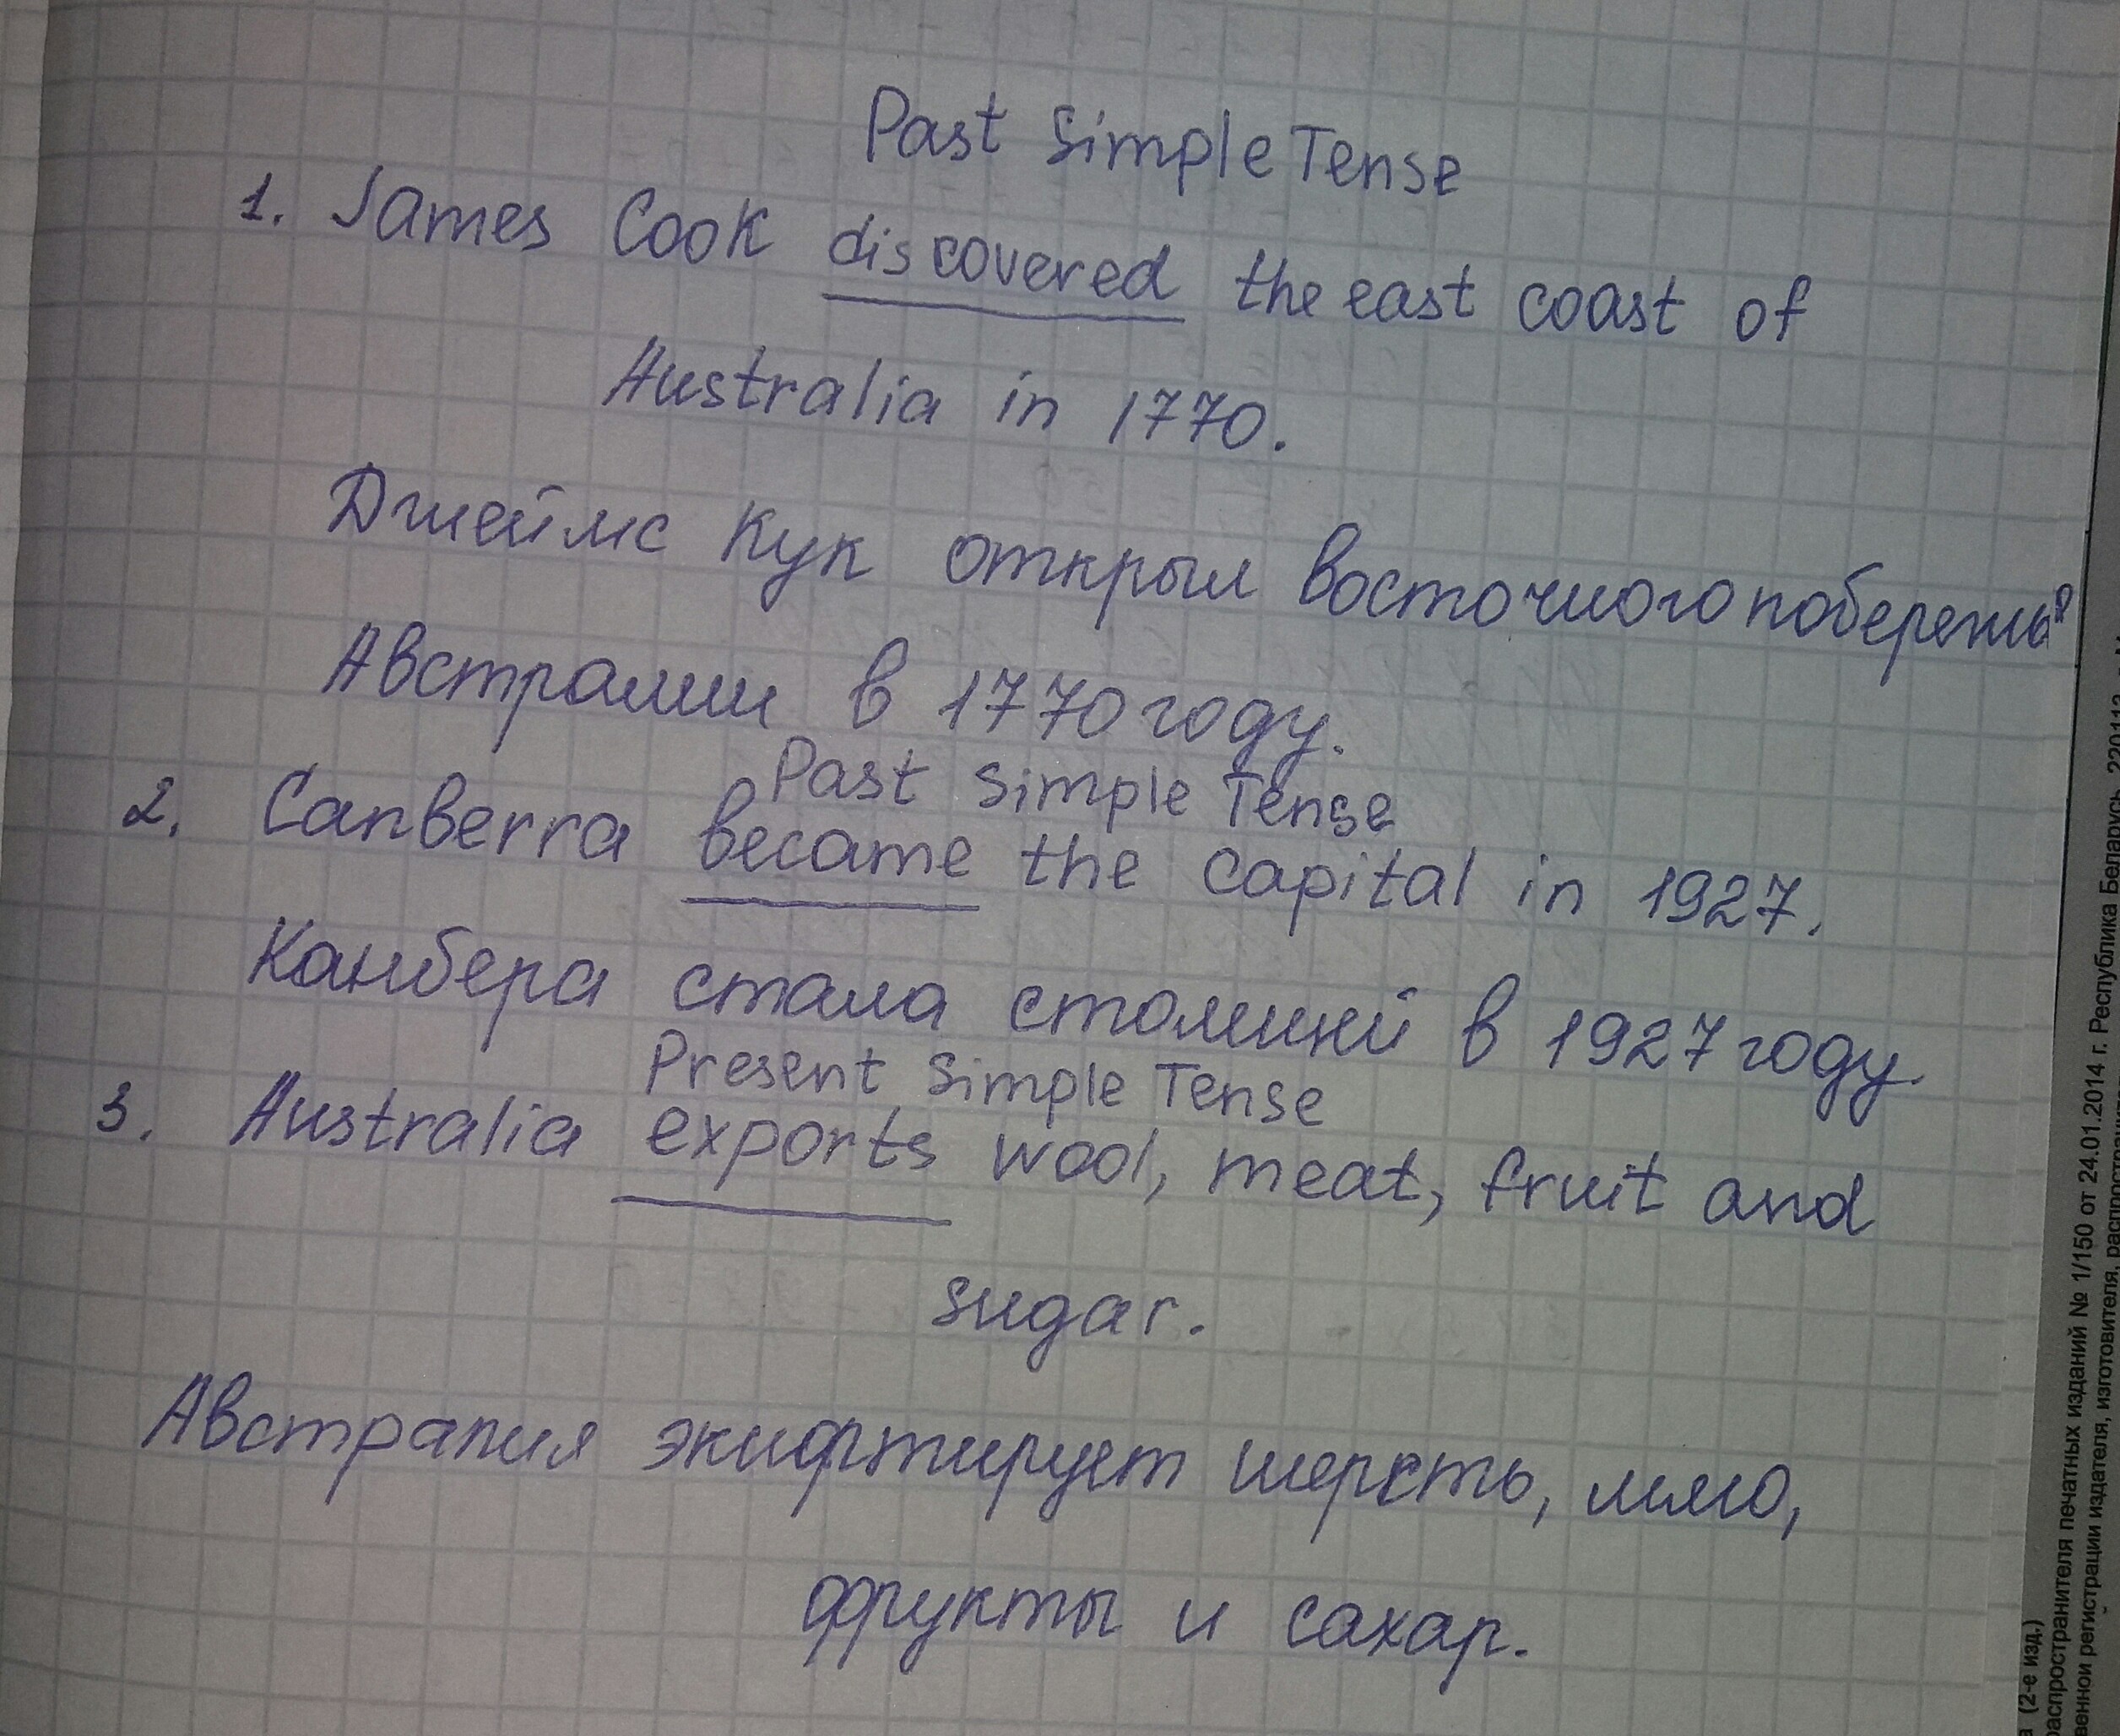 Past Simple Tense
1. James Cook discovered the east coast of
Australia in 1770.
Джеймс Кук открыл восточного побережье
Австралии в 1770 году.
Past Simple Tense
2. Canberra became the capital in 1927.
Канбера стала столицей в 1927 году.
Present Simple Tense
3. Australia exports wool, meat, fruit and
sugar.
Австралия шерсть,
фрукты и сахар.
(2-е изд.)
распространителя печатных изданий № 1/150 от 24.01.2014 г. Республика Беларусь, 220113,
регистрации издателя, изготовителя,